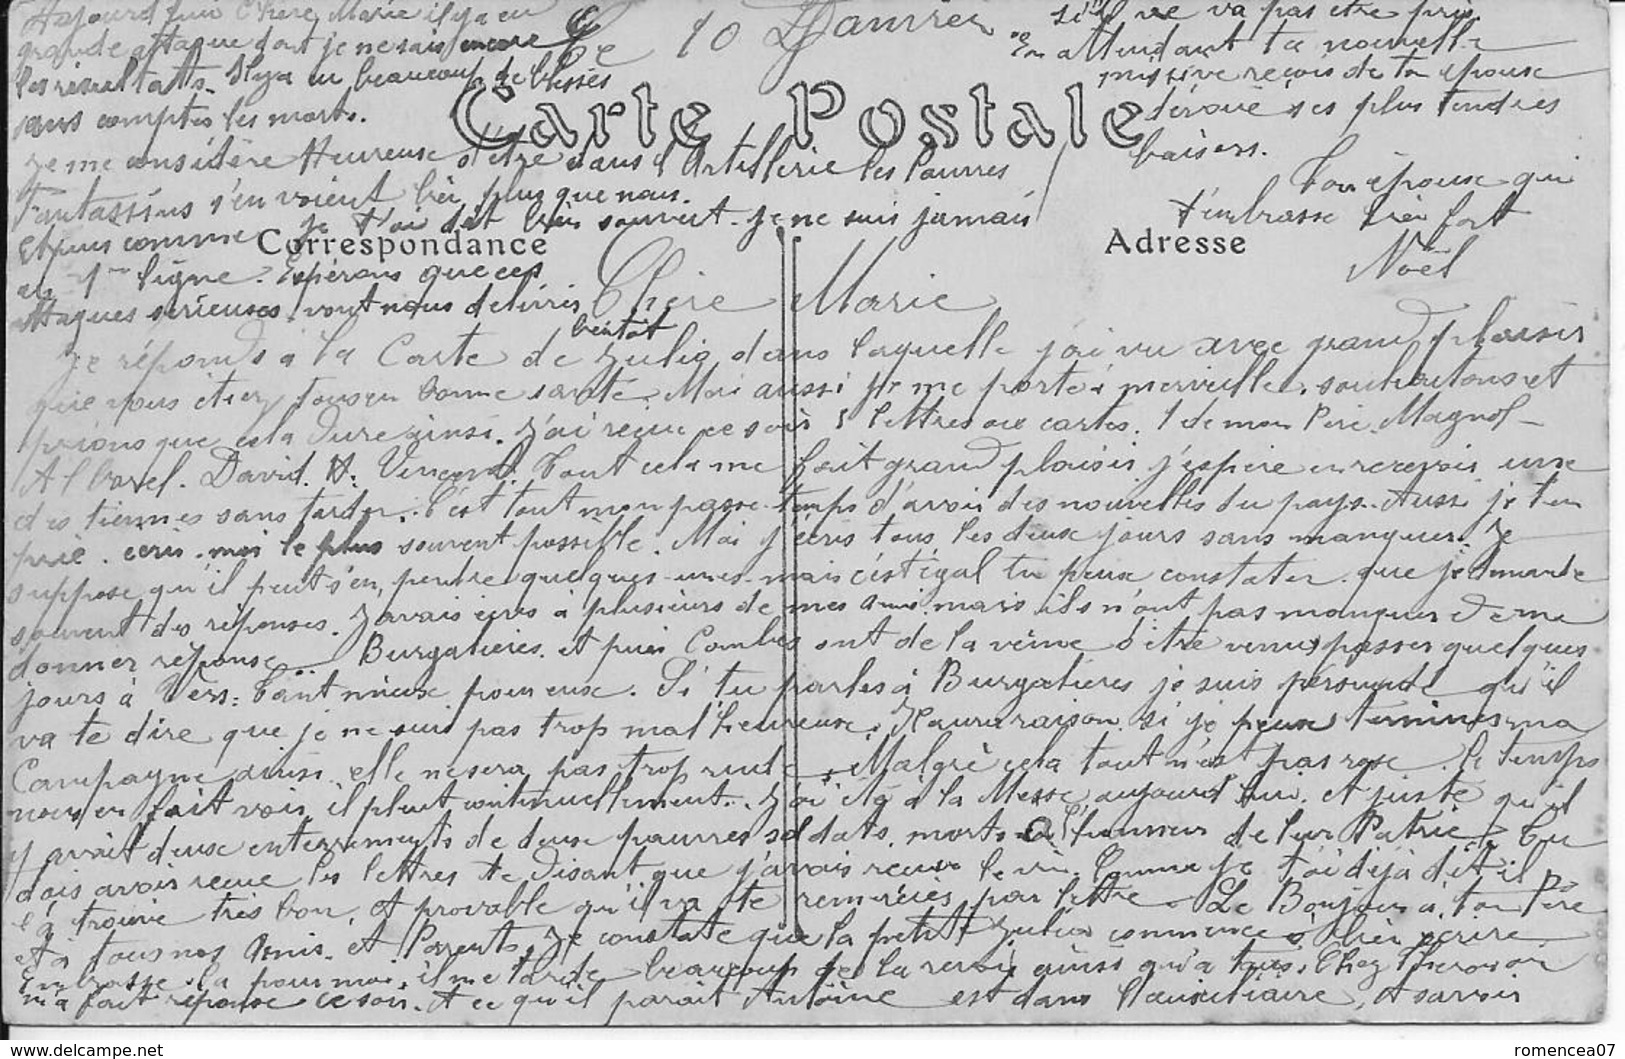 Le 10 Janvier
Carte Postale
Correspondance
Adresse
Chère Marie
Je réponds à la Carte de Julia dans laquelle j'ai vu avec grand plaisir
que vous étiez tous en bonne santé. Moi aussi je me porte à merveille. souhaitons et
prions que cela dure ainsi. J'ai reçue ce soir 5 lettres ou cartes. 1 de mon Père. Magnol-
David. Vincent. Tout cela me fait grand plaisir j'espère en recevoir une
des tiennes sans tarder. C'est tout mon passe-temps d'avoir des nouvelles du pays. Aussi je t'en
prie. ecris-moi le plus souvent possible. Moi j'écris tous les deux jours sans manquer. Je
suppose qu'il peut s'en perdre quelques-unes mais c'est égal tu peux constater que je demande
souvent des réponses. J'avais écris à plusieurs de mes amis mais ils n'ont pas manquer de me
donner réponse. Burgatières et puis Combes ont de la veine d'être venus passer quelques
jours à Vers. Tant mieux pour eux. Si tu parles à Burgatières je suis persuadé qu'il
va te dire que je ne suis pas trop malheureux. Il aura raison si je peux terminer ma
Campagne ainsi elle ne sera pas trop rude. Malgrè cela tout n'est pas rose. le temps
nous en fait voir il pleut continuellement. J'ai été à la Messe aujourd'hui. et juste qu'il
y avait deux enterrements de deux pauvres soldats. morts à l'honneur de leur Patrie. Tu
dois avoir reçue les lettres te disant que j'avais reçu le vin. Comme je t'ai déjà dit il
l'a trouvé très bon. et provable qu'il va te remerciés par lettre. Le Bonjour à ton Père
et à tous nos Amis. et Parents. Je constate que la petite Julia commence à bien ecrire.
Embrasse-la pour moi. il me tarde beaucoup de la revoir ainsi qu'à tous. Chez
m'a fait réponse ce soir. Et ce qu'il parait Antoine est dans l'auxiliaire, et savoir
si il ne va pas être pris.
En attendant ta nouvelle
missive reçois de ton epoux
dévoué ses plus tendres
baisers.
Ton époux qui
t'embrasse bien fort
Noël
Aujourd'hui Chère Marie il y a eu
grande attaque dont je ne sais encore
les résultats. Il y a eu beaucoup de blessés
sans comptés les morts.
Je me considère Heureux d'être dans l'Artillerie les Pauvres
Fantassins s'en voient bien plus que nous.
Et puis comme je t'ai dit bien souvent je ne suis jamais
en 1ère ligne. Espérons que ces
attaques sérieuses vont nous délivrés
bientôt
romencea07